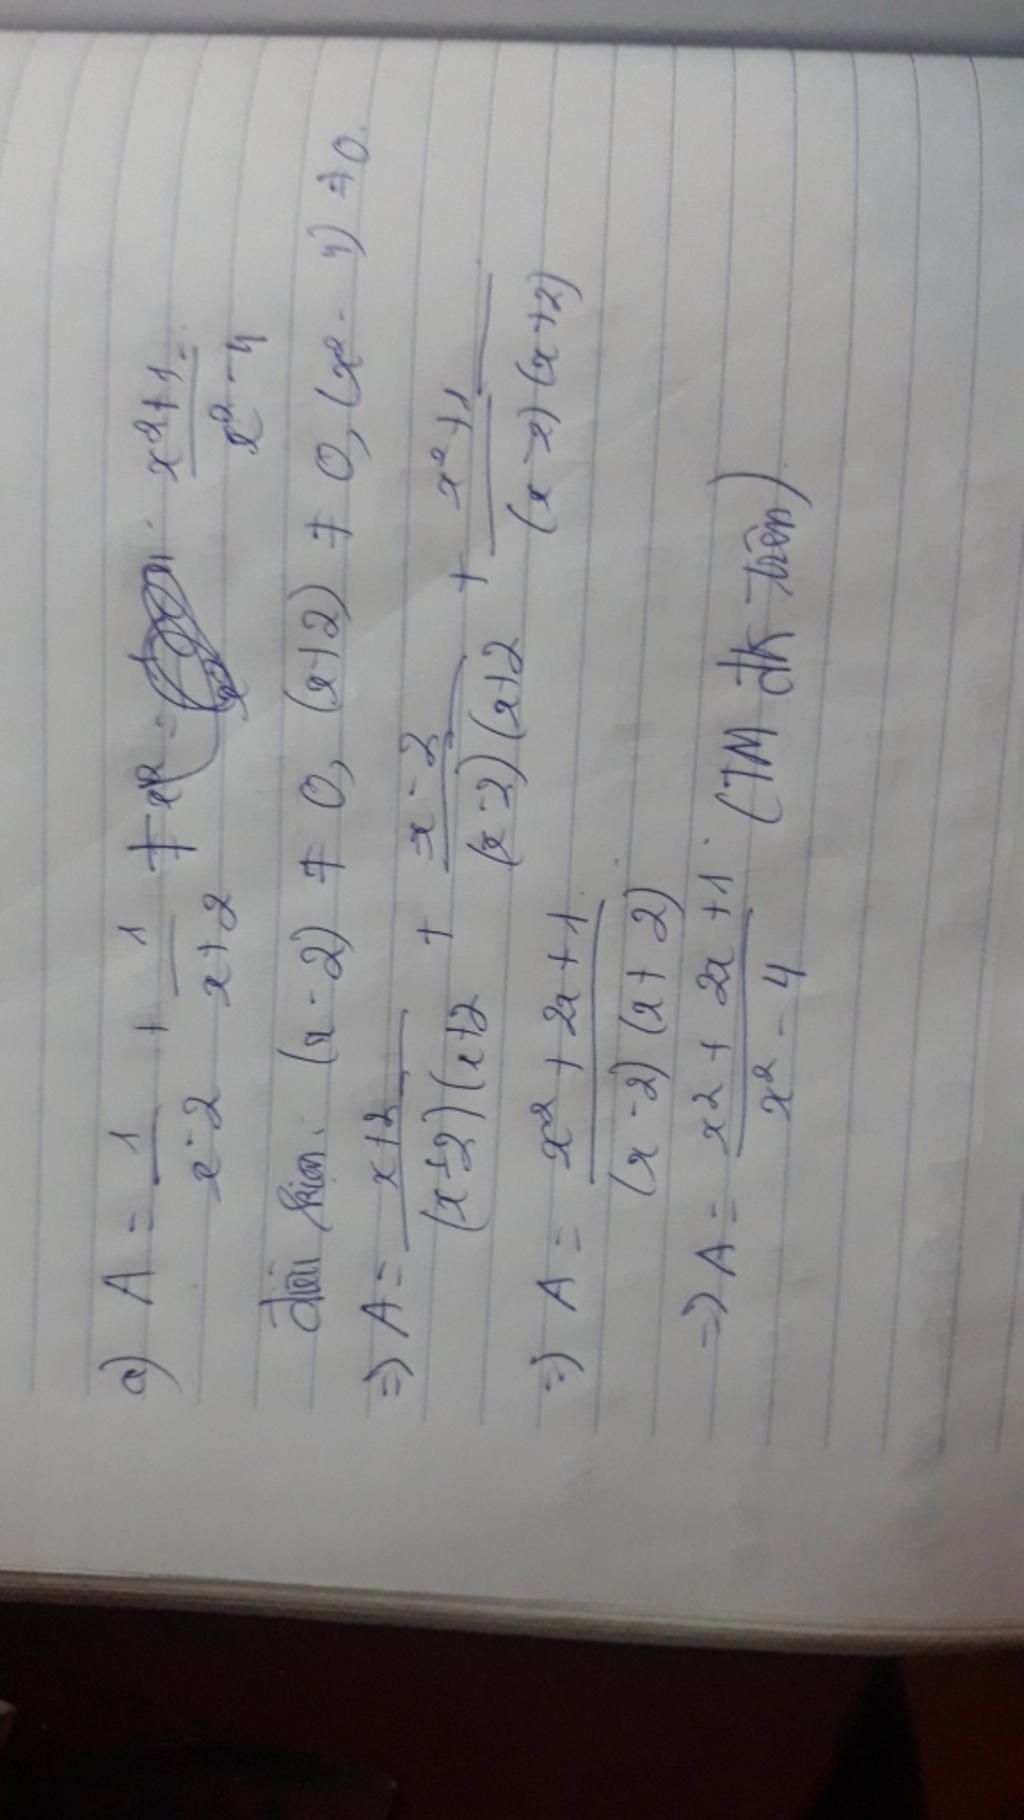 a) A = 1/(x-2) + 1/(x+2) + x²+1/(x²-4)
điều kiện: (x-2) ≠ 0, (x+2) ≠ 0, (x²-4) ≠ 0.
=) A = x+2/(x-2)(x+2 + x-2/(x-2)(x+2 + x²+1/(x-2)(x+2)
=) A = x²+2x+1/(x-2)(x+2)
=) A = x2+2x+1/x²-4 (TM đk trên)